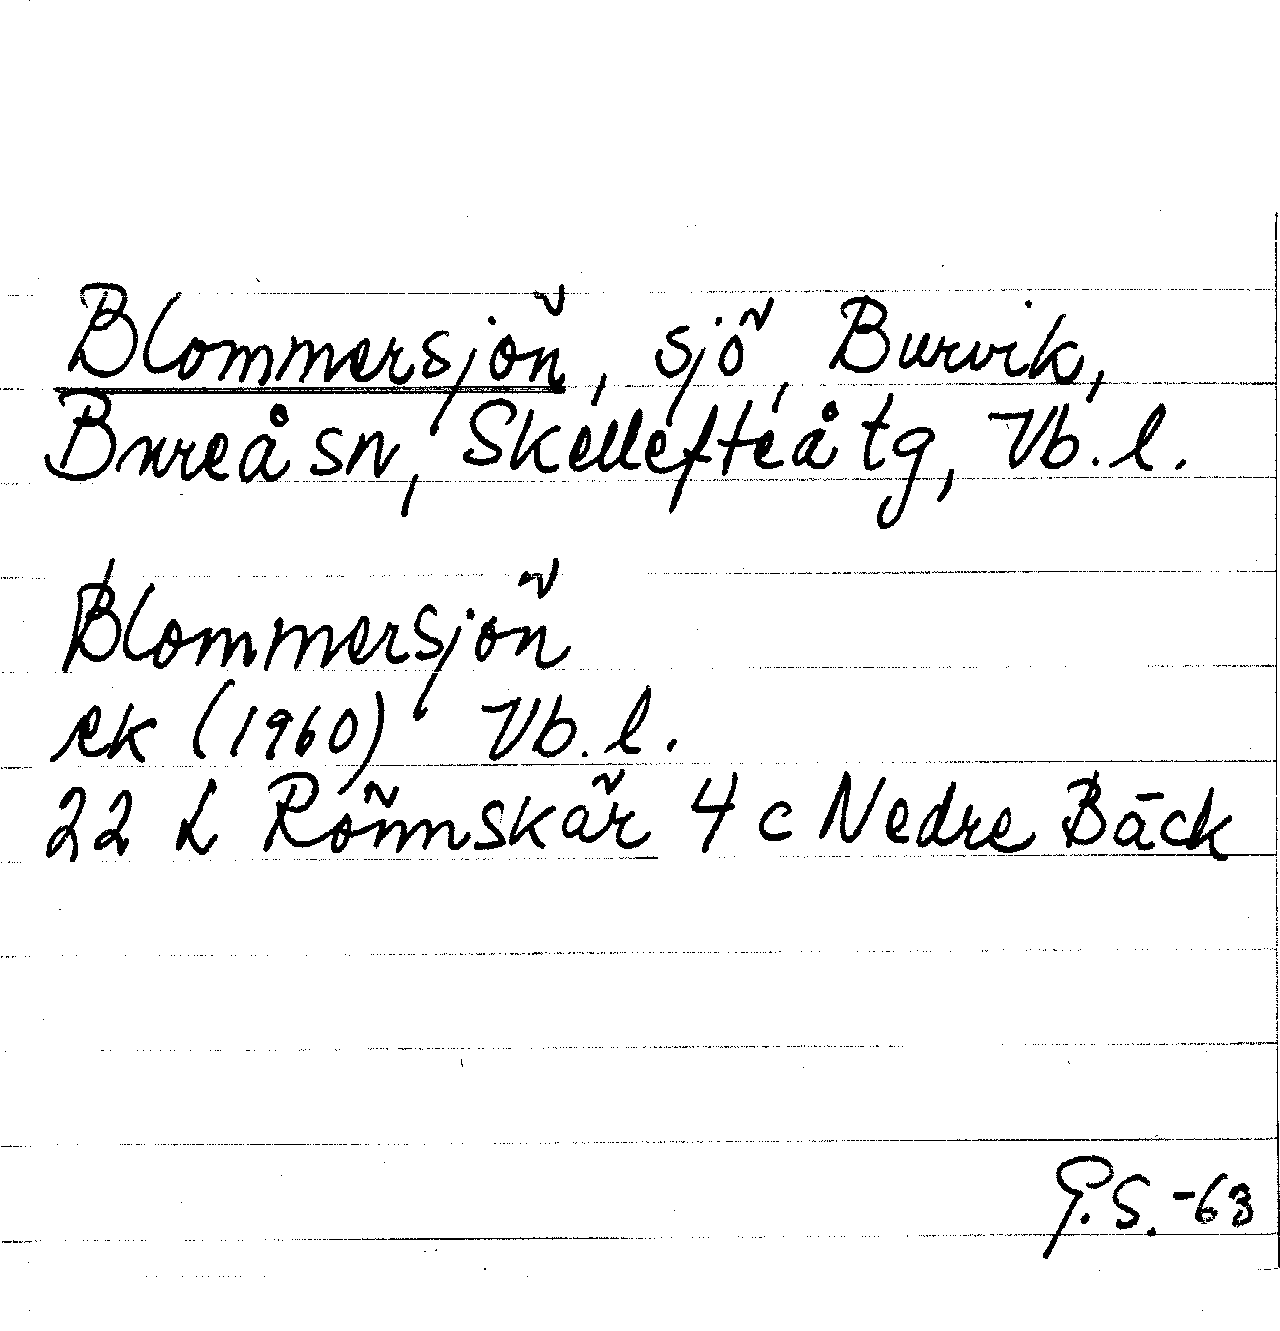 Blommersjön, sjö, Burvik,
Bureå sn, Skellefteå tg, Vb. l.
Blommersjön
ek (1960) Vb. l.
22 L Rönnskär 4 c Nedre Bäck
G.S.-63